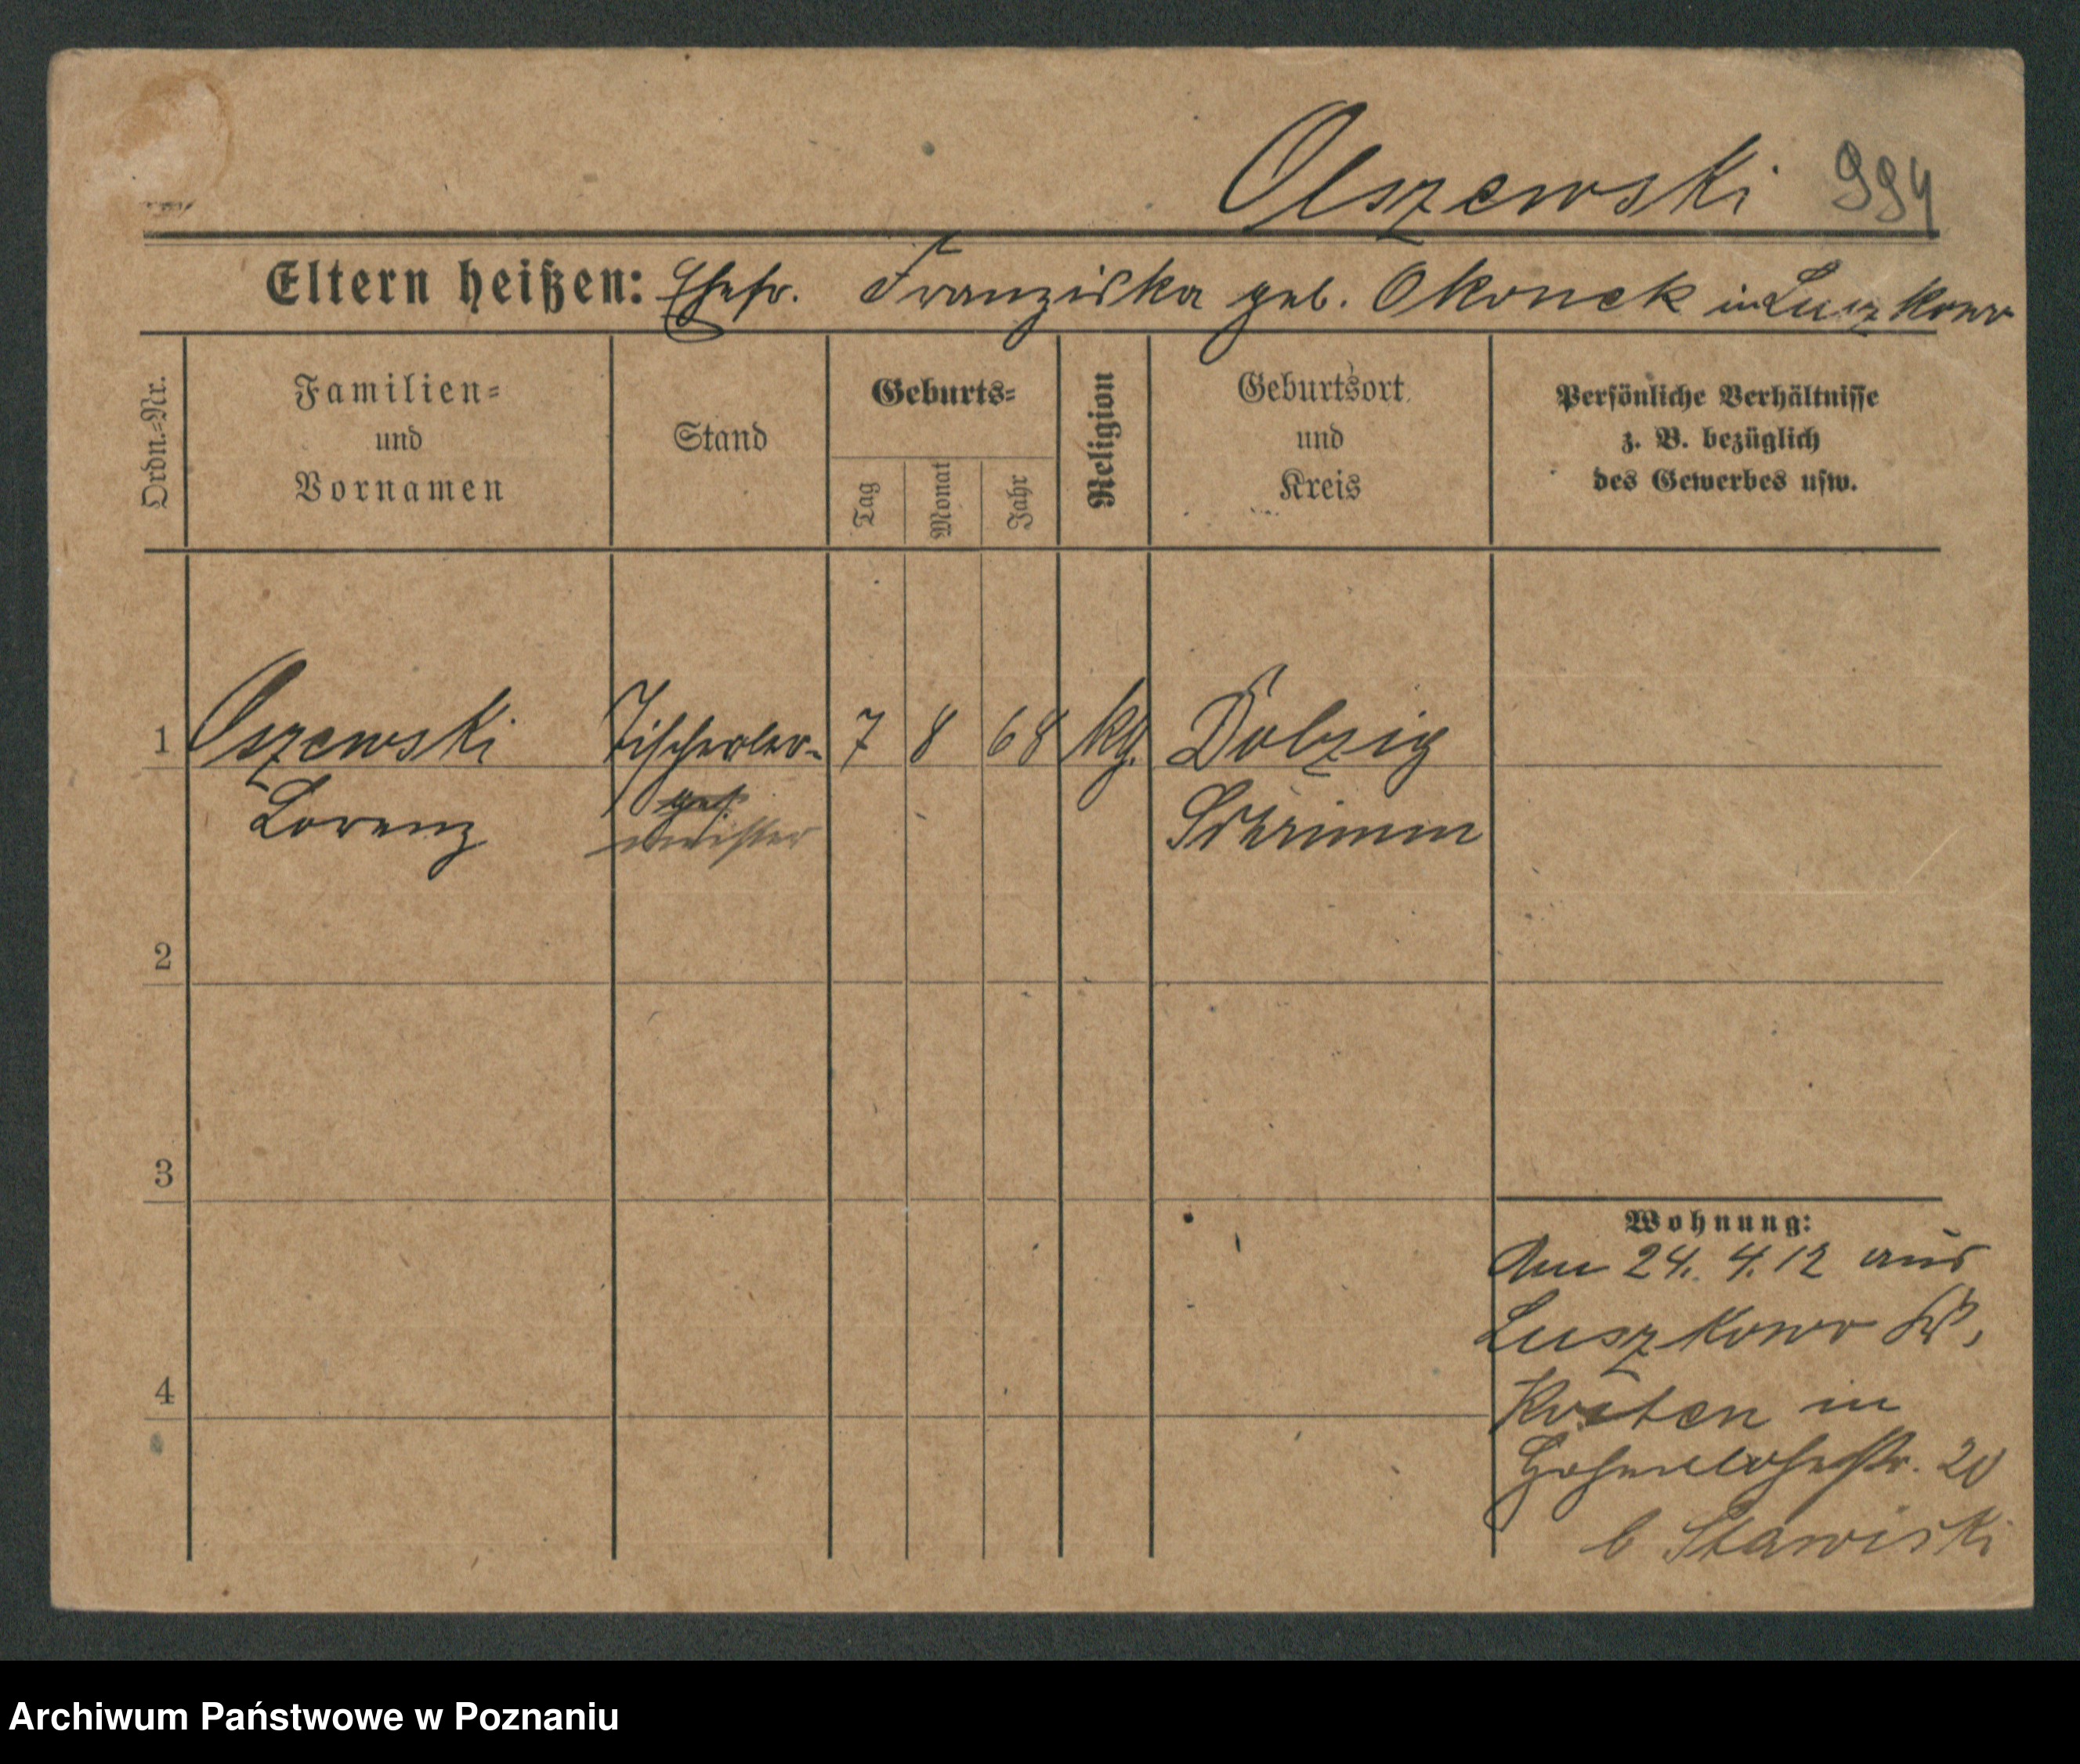 Olszewski 994
Eltern heißen: Ehefr. Franziska geb. Okonek in Luszkowo
Ordn.=Nr.
Familien=
und
Vornamen
Stand
Geburts=
Tag
Monat
Jahr
Religion
Geburtsort
und
Kreis
Persönliche Verhältnisse
z. B. bezüglich
des Gewerbes usw.
1 Oszewski Tischler- 7 8 68 kth. Dolzig
Lorenz ges Schrimm
meister
2
3
4
Wohnung:
Am 24. 4. 12 aus
Luszkowo Kr.
Kosten in
Hohenlohestr. 20
b Stawiski
Archiwum Państwowe w Poznaniu